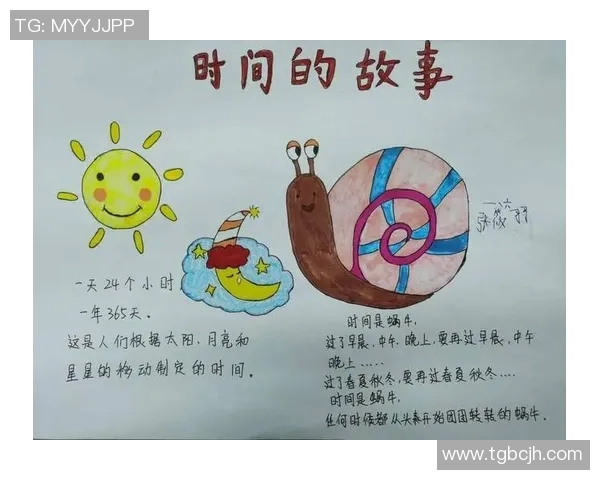 TG: MYYJJPP
时间的故事
一六
张筱羽
一天24个小时,
一年365天.
这是人们根据太阳、月亮和
星星的移动制定的时间.
时间是蜗牛,
过了早晨,中午,晚上,要再过早晨,中午
晚上.....
过了春夏秋冬,要再过春夏秋冬....
时间是蜗牛.
任何时候都从头来开始团团转转的蜗牛.
www.tgbcjh.com